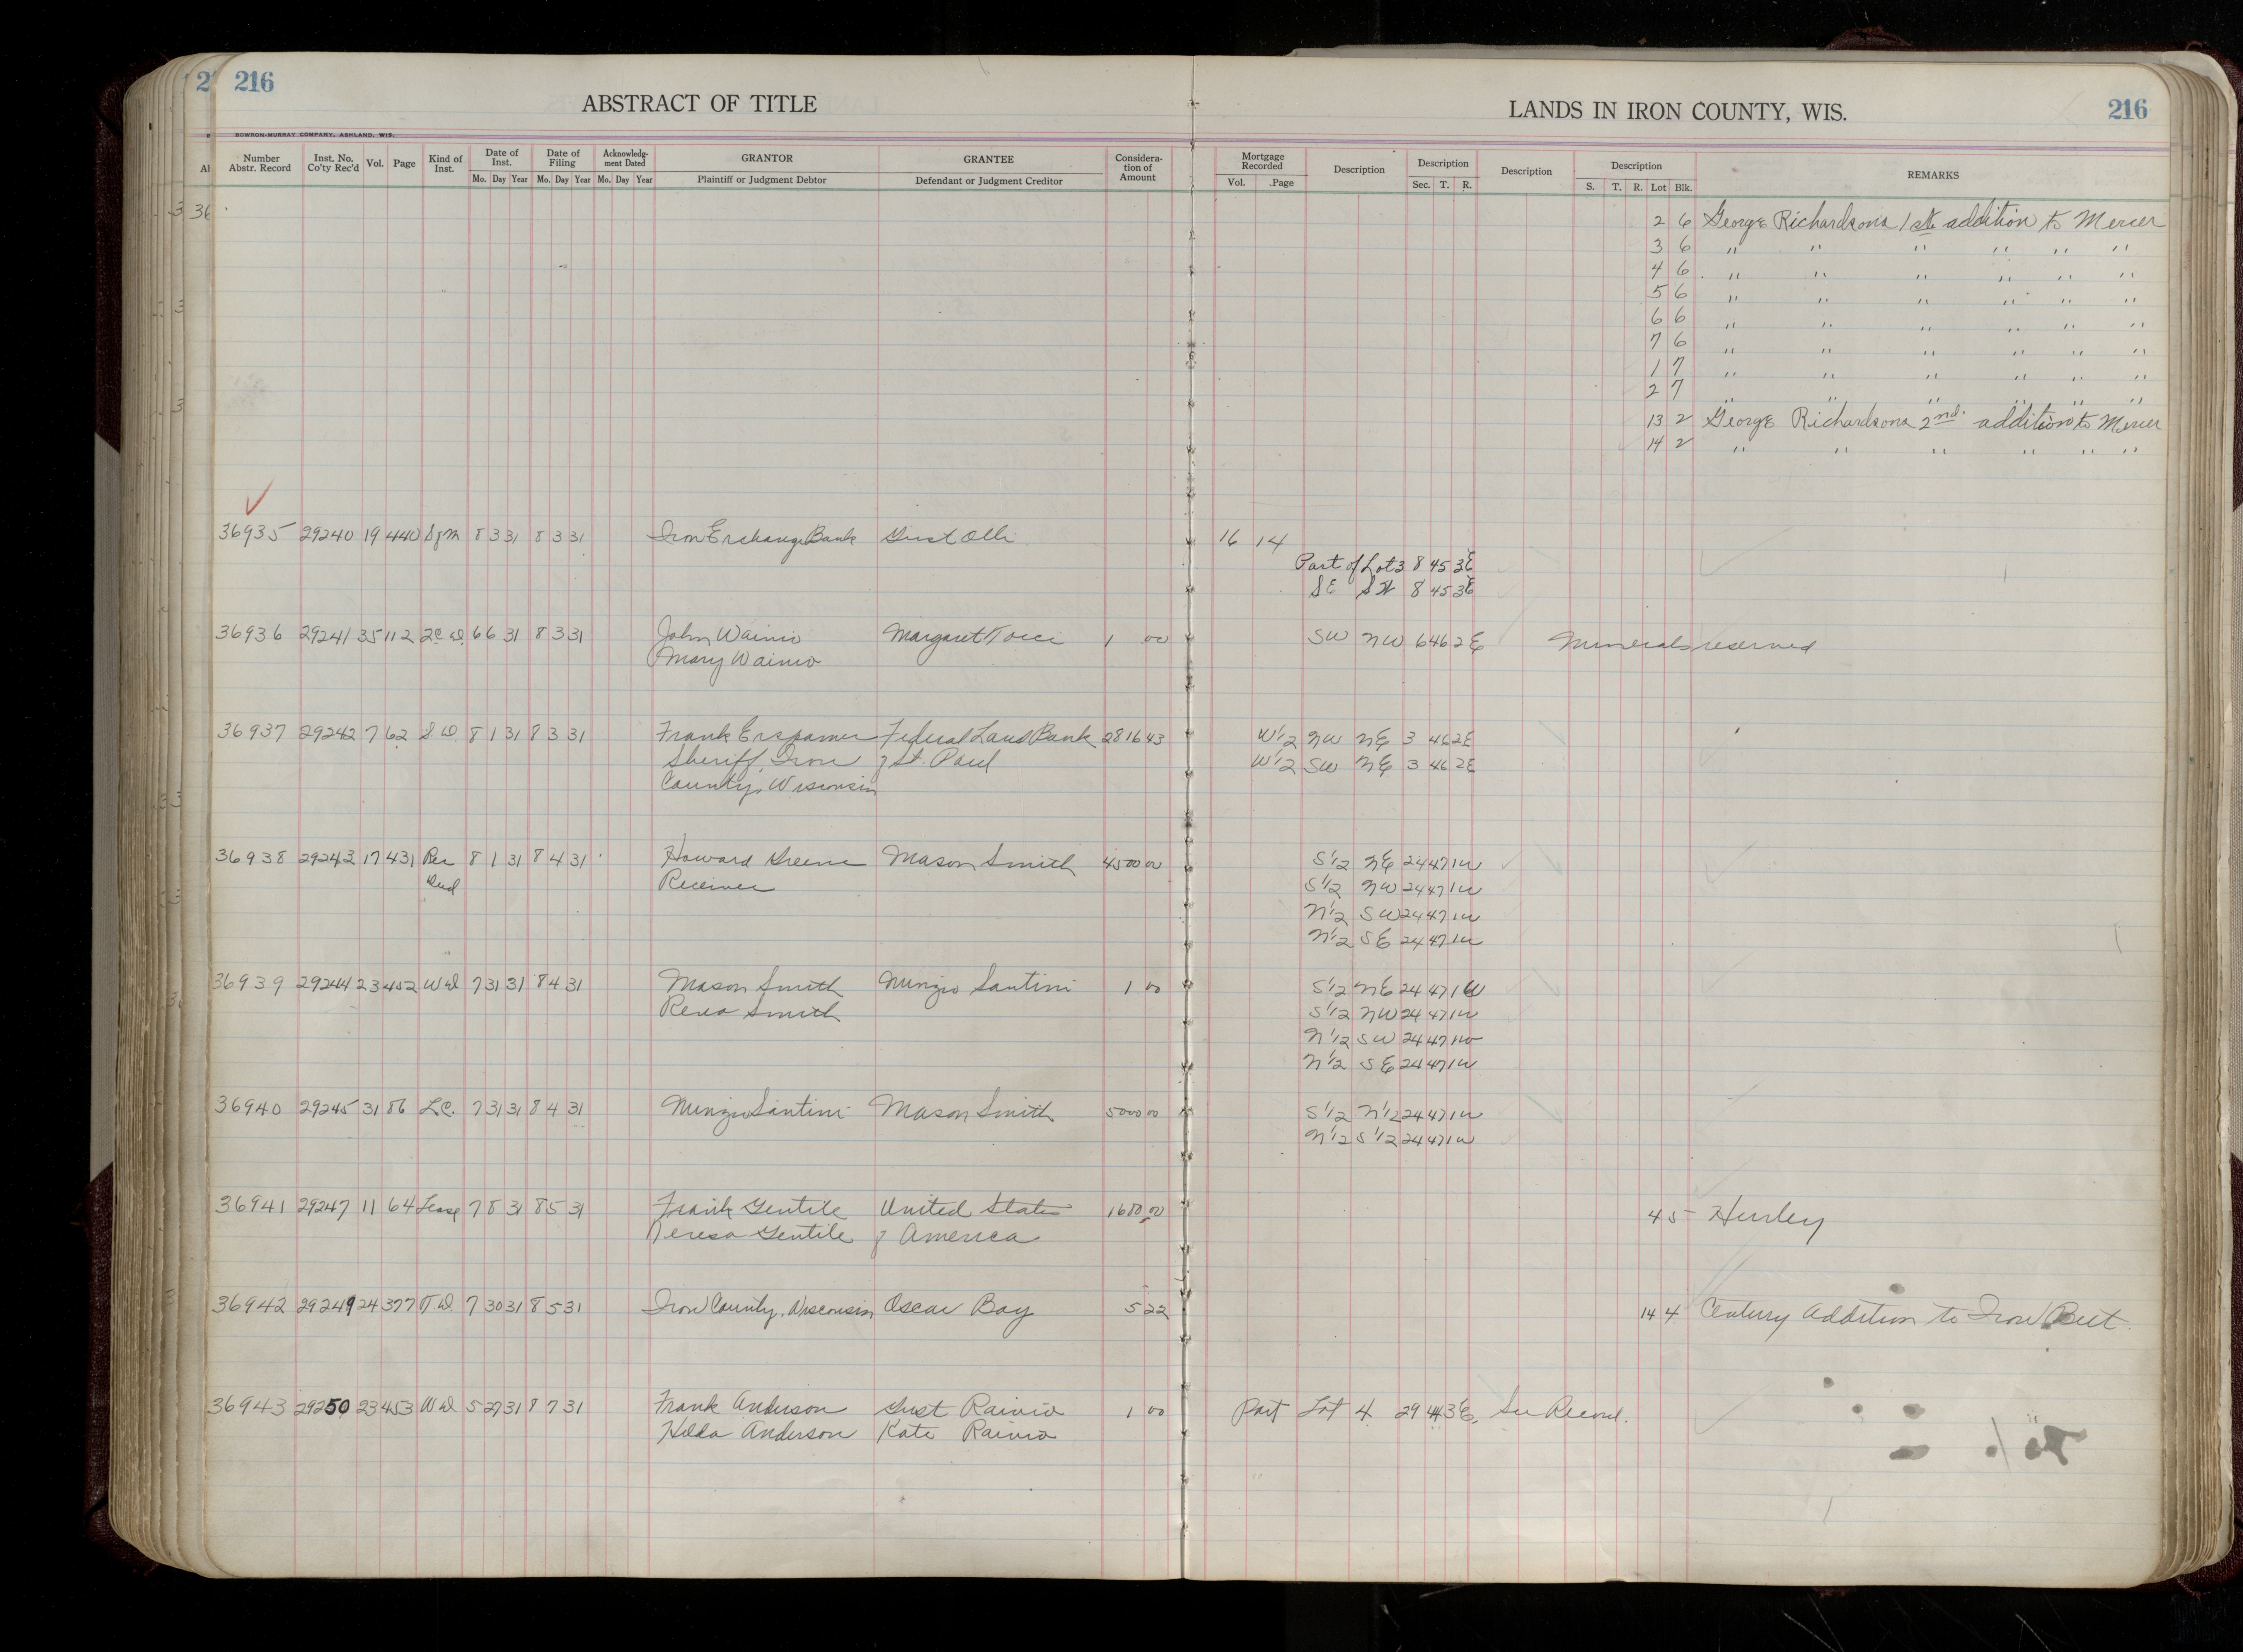 216
ABSTRACT OF TITLE
LANDS IN IRON COUNTY, WIS.
216
BOWRON-MURRAY COMPANY, ASHLAND, WIS.
Number Abstr. Record Inst. No. Co'ty Rec'd Vol. Page Kind of Inst. Date of Inst. Mo. Day Year Date of Filing Mo. Day Year Acknowledgment Dated Mo. Day Year GRANTOR Plaintiff or Judgment Debtor GRANTEE Defendant or Judgment Creditor Consideration of Amount Mortgage Recorded Vol. Page Description Description Sec. T. R. Description Description S. T. R. Lot Blk. REMARKS
2 6 George Richardsons 1st addition to Mercer
3 6 " " " " " "
4 6 " " " " " "
5 6 " " " " " "
6 6 " " " " " "
7 6 " " " " " "
1 7 " " " " " "
2 7 " " " " " "
13 2 George Richardsons 2nd. addition to Mercer
14 2 " " " " " "
36935 29240 19 440 8 3 31 8 3 31 Iron Exchange Bank Gust Olli 16 14
Part of Lot 3 8 45 3E
SE SW 8 45 3E
36936 29241 35 112 2C D. 6 6 31 8 3 31 John Wainio Margaret Tocci 1 00 SW NW 6 46 2E Minerals reserved
Mary Wainio
36937 29242 7 62 S D. 8 1 31 8 3 31 Frank Erspamer Federal Land Bank 2816 43 W1/2 NW NE 3 46 2E
Sheriff, Iron of St. Paul W1/2 SW NE 3 46 2E
County, Wisconsin
36938 29243 17 431 Rec 8 1 31 8 4 31 Howard Greene Mason Smith 4500 00 S1/2 NE 24 47 1W
Deed Receiver S1/2 NW 24 47 1W
N1/2 SW 24 47 1W
N1/2 SE 24 47 1W
36939 29244 23 452 W D 7 31 31 8 4 31 Mason Smith Nunzio Santini 1 00 S1/2 NE 24 47 1W
Rena Smith S1/2 NW 24 47 1W
N1/2 SW 24 47 1W
N1/2 SE 24 47 1W
36940 29245 31 86 L.C. 7 31 31 8 4 31 Nunzio Santini Mason Smith 5000 00 S1/2 N1/2 24 47 1W
N1/2 S1/2 24 47 1W
36941 29247 11 64 Lease 7 8 31 8 5 31 Frank Gentile United States 1680.00 4 5 Hurley
Teresa Gentile of America
36942 29249 24 377 T D. 7 30 31 8 5 31 Iron County, Wisconsin Oscar Bay 5 22 14 4 Century Addition to Iron Belt
36943 29250 23 453 W D 5 27 31 8 7 31 Frank Anderson Gust Rainio 1 00 Part Lot 4 29 44 3E, See Record.
Hilda Anderson Kate Rainio